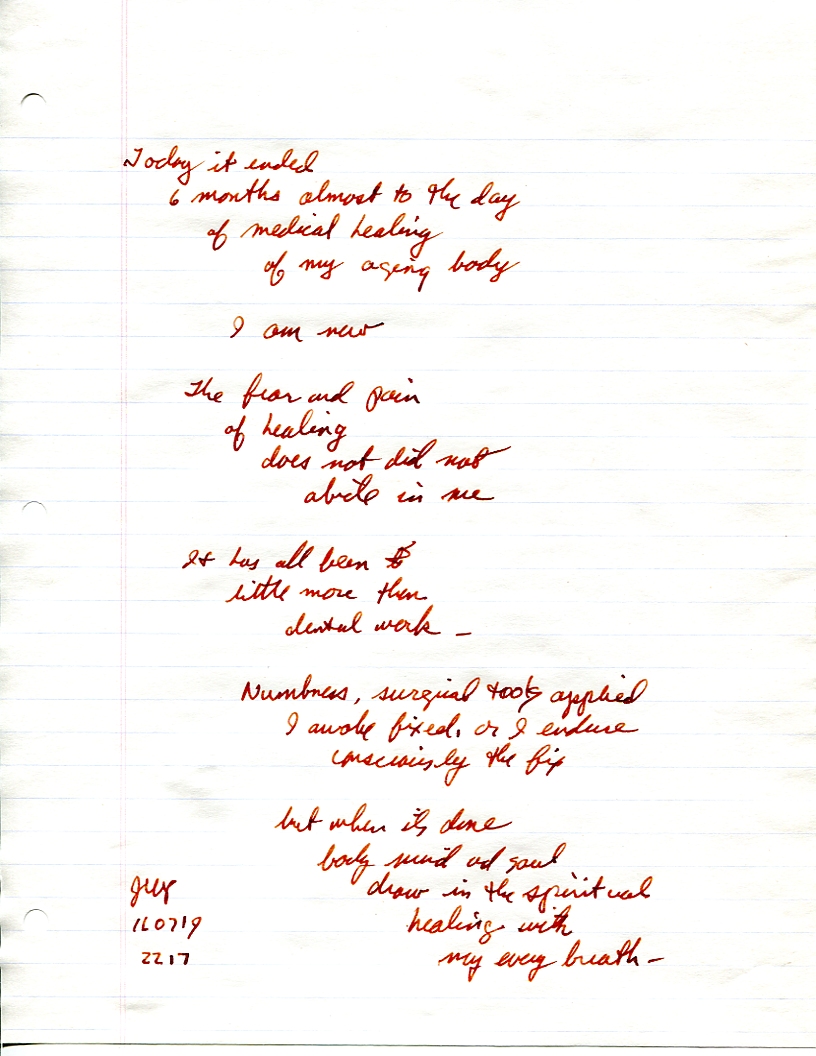 Today it ended
6 months almost to the day
of medical healing
of my aging body
I am new
The fear and pain
of healing
does not did not
abide in me
It has all been
little more than
dental work –
Numbness, surgical tools applied
I awoke fixed, or I endure
consciously the fix
but when its done
body mind and soul
draw in the spiritual
healing with
my every breath –
160719
2217